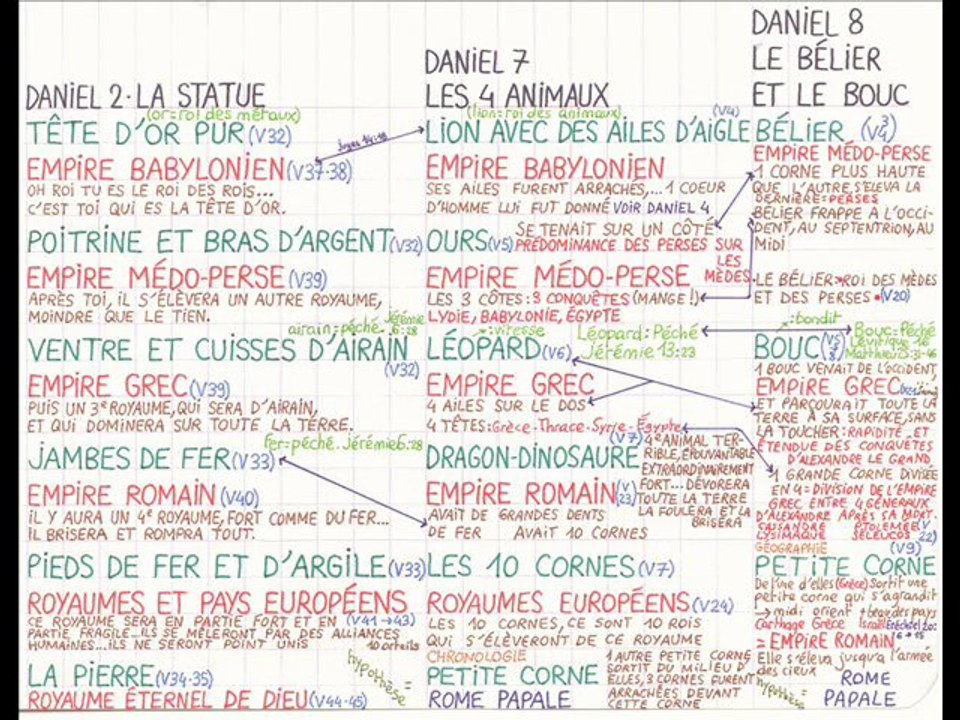 DANIEL 2. LA STATUE
(or=roi des métaux)
TÊTE D'OR PUR (V32)
EMPIRE BABYLONIEN (V37-38)
OH ROI TU ES LE ROI DES ROIS...
C'EST TOI QUI ES LA TÊTE D'OR.
POITRINE ET BRAS D'ARGENT (V32)
EMPIRE MÉDO-PERSE (V39)
APRÈS TOI, IL S'ÉLÈVERA UN AUTRE ROYAUME,
MOINDRE QUE LE TIEN.
airain=péché. Jérémie 6:28
VENTRE ET CUISSES D'AIRAIN
(V32)
EMPIRE GREC (V39)
PUIS UN 3e ROYAUME, QUI SERA D'AIRAIN,
ET QUI DOMINERA SUR TOUTE LA TERRE.
fer=péché. Jérémie 6:28
JAMBES DE FER (V33)
EMPIRE ROMAIN (V40)
IL Y AURA UN 4e ROYAUME, FORT COMME DU FER...
IL BRISERA ET ROMPRA TOUT.
PIEDS DE FER ET D'ARGILE (V33)
ROYAUMES ET PAYS EUROPÉENS
CE ROYAUME SERA EN PARTIE FORT ET EN (V41→43)
PARTIE FRAGILE...ILS SE MÊLERONT PAR DES ALLIANCES
HUMAINES...ILS NE SERONT POINT UNIS 10 orteils
LA PIERRE (V34-35)
ROYAUME ÉTERNEL DE DIEU (V44-45)
hypothèse=
DANIEL 7
LES 4 ANIMAUX
(lion=roi des animaux)
(V4)
LION AVEC DES AILES D'AIGLE
EMPIRE BABYLONIEN
SES AILES FURENT ARRACHÉS,... 1 COEUR
D'HOMME LUI FUT DONNÉ VOIR DANIEL 4
OURS (V5) SE TENAIT SUR UN CÔTÉ
PRÉDOMINANCE DES PERSES SUR
LES
MÈDES
EMPIRE MÉDO-PERSE
LES 3 CÔTES: 3 CONQUÊTES (MANGE!)
LYDIE, BABYLONIE, ÉGYPTE
:vitesse
Léopard:Péché
Jérémie 13:23
LÉOPARD (V6)
EMPIRE GREC
4 AILES SUR LE DOS
4 TÊTES:Grèce-Thrace-Syrie-Égypte
(V7)
DRAGON-DINOSAURE
4e ANIMAL TER-
RIBLE, ÉPOUVANTABLE
EXTRAORDINAIREMENT
FORT... DÉVORERA
TOUTE LA TERRE
LA FOULERA ET LA
BRISERA
EMPIRE ROMAIN (V23)
AVAIT DE GRANDES DENTS
DE FER AVAIT 10 CORNES
LES 10 CORNES (V7)
ROYAUMES EUROPÉENS (V24)
LES 10 CORNES, CE SONT 10 ROIS
QUI S'ÉLÈVERONT DE CE ROYAUME
CHRONOLOGIE
PETITE CORNE
ROME PAPALE
1 AUTRE PETITE CORNE
SORTIT DU MILIEU D'
ELLES, 3 CORNES FURENT
ARRACHÉES DEVANT
CETTE CORNE
DANIEL 8
LE BÉLIER
ET LE BOUC
BÉLIER (V3 4)
EMPIRE MÉDO-PERSE
1 CORNE PLUS HAUTE
QUE L'AUTRE S'ÉLEVA LA
DERNIÈRE=PERSES
BÉLIER FRAPPE A L'OCCI-
DENT, AU SEPTENTRION, AU
MIDI
LE BÉLIER→ROI DES MÈDES
ET DES PERSES (V20)
:bondit
Bouc=Péché
Lévitique 16
Matthieu 25:31-46
BOUC (V5 8)
1 BOUC VENAIT DE L'OCCIDENT,
EMPIRE GREC
ET PARCOURAIT TOUTE LA
TERRE À SA SURFACE, SANS
LA TOUCHER: RAPIDITÉ ET
ÉTENDUE DES CONQUÊTES
D'ALEXANDRE LE GRAND
1 GRANDE CORNE DIVISÉE
EN 4=DIVISION DE L'EMPIRE
GREC ENTRE 4 GÉNÉRAUX
D'ALEXANDRE APRÈS SA MORT.
CASSANDRE PTOLÉMÉE (V
LYSIMAQUE SÉLEUCOS 22)
GÉOGRAPHIE (V9)
PETITE CORNE
De l'une d'elles (Grèce) sortit une
petite corne qui s'agrandit
→midi orient + beau des pays
Carthage Grèce Israël Ézéchiel 20:
6→15
=EMPIRE ROMAIN
Elle s'éleva jusqu'à l'armée
des cieux
hypothèse=
ROME
PAPALE